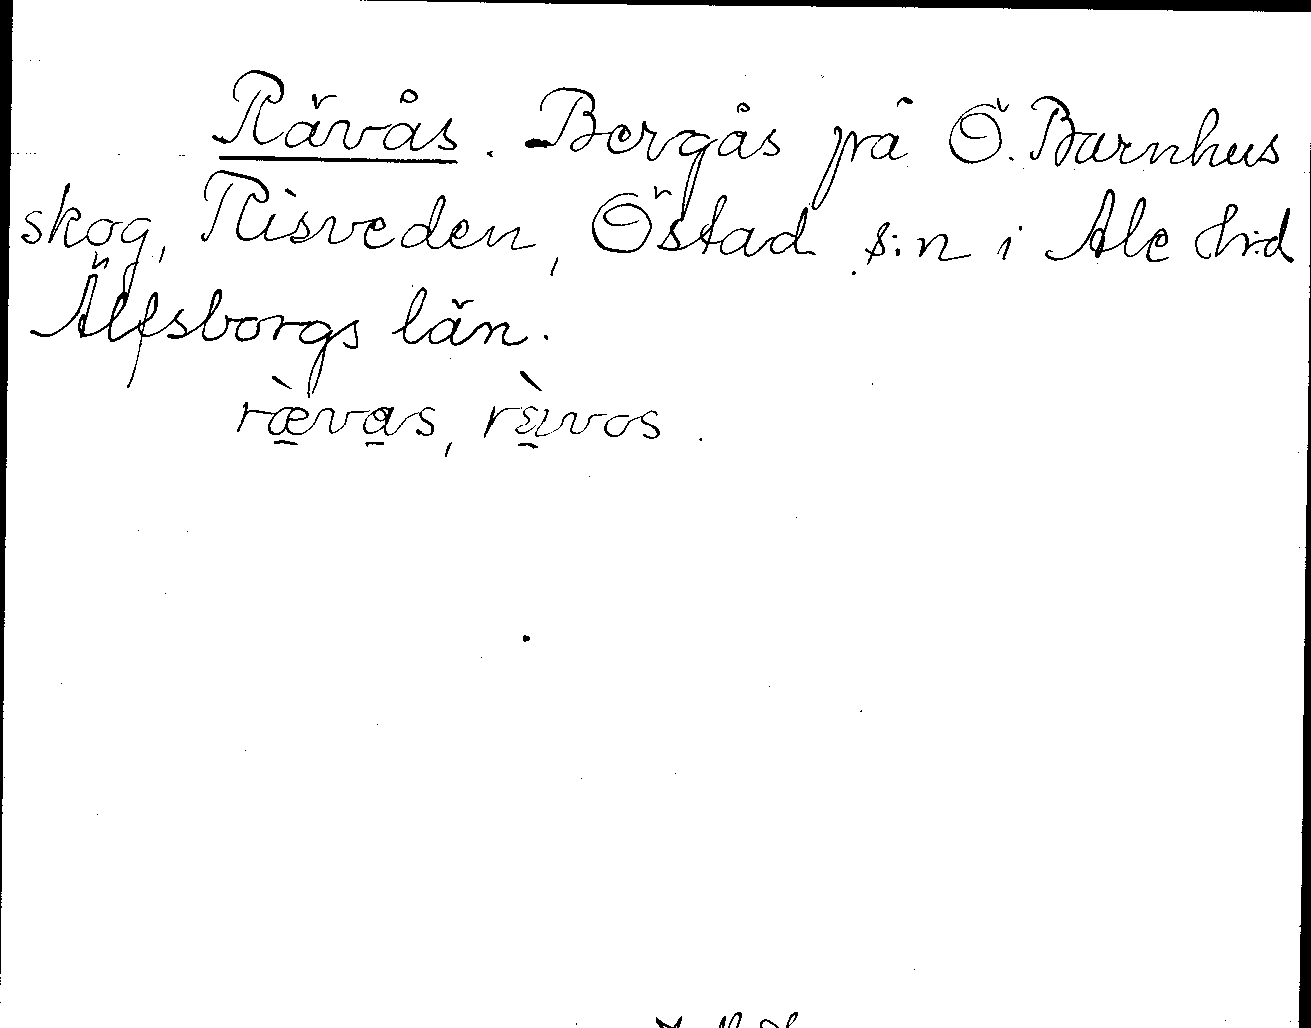 Rävås. Bergås på Ö. Barnhus
skog, Risveden, Östad s:n i Ale h:d
Älfsborgs län.
ræ̠̀va̠s, rɛ̠̀ɩvos.